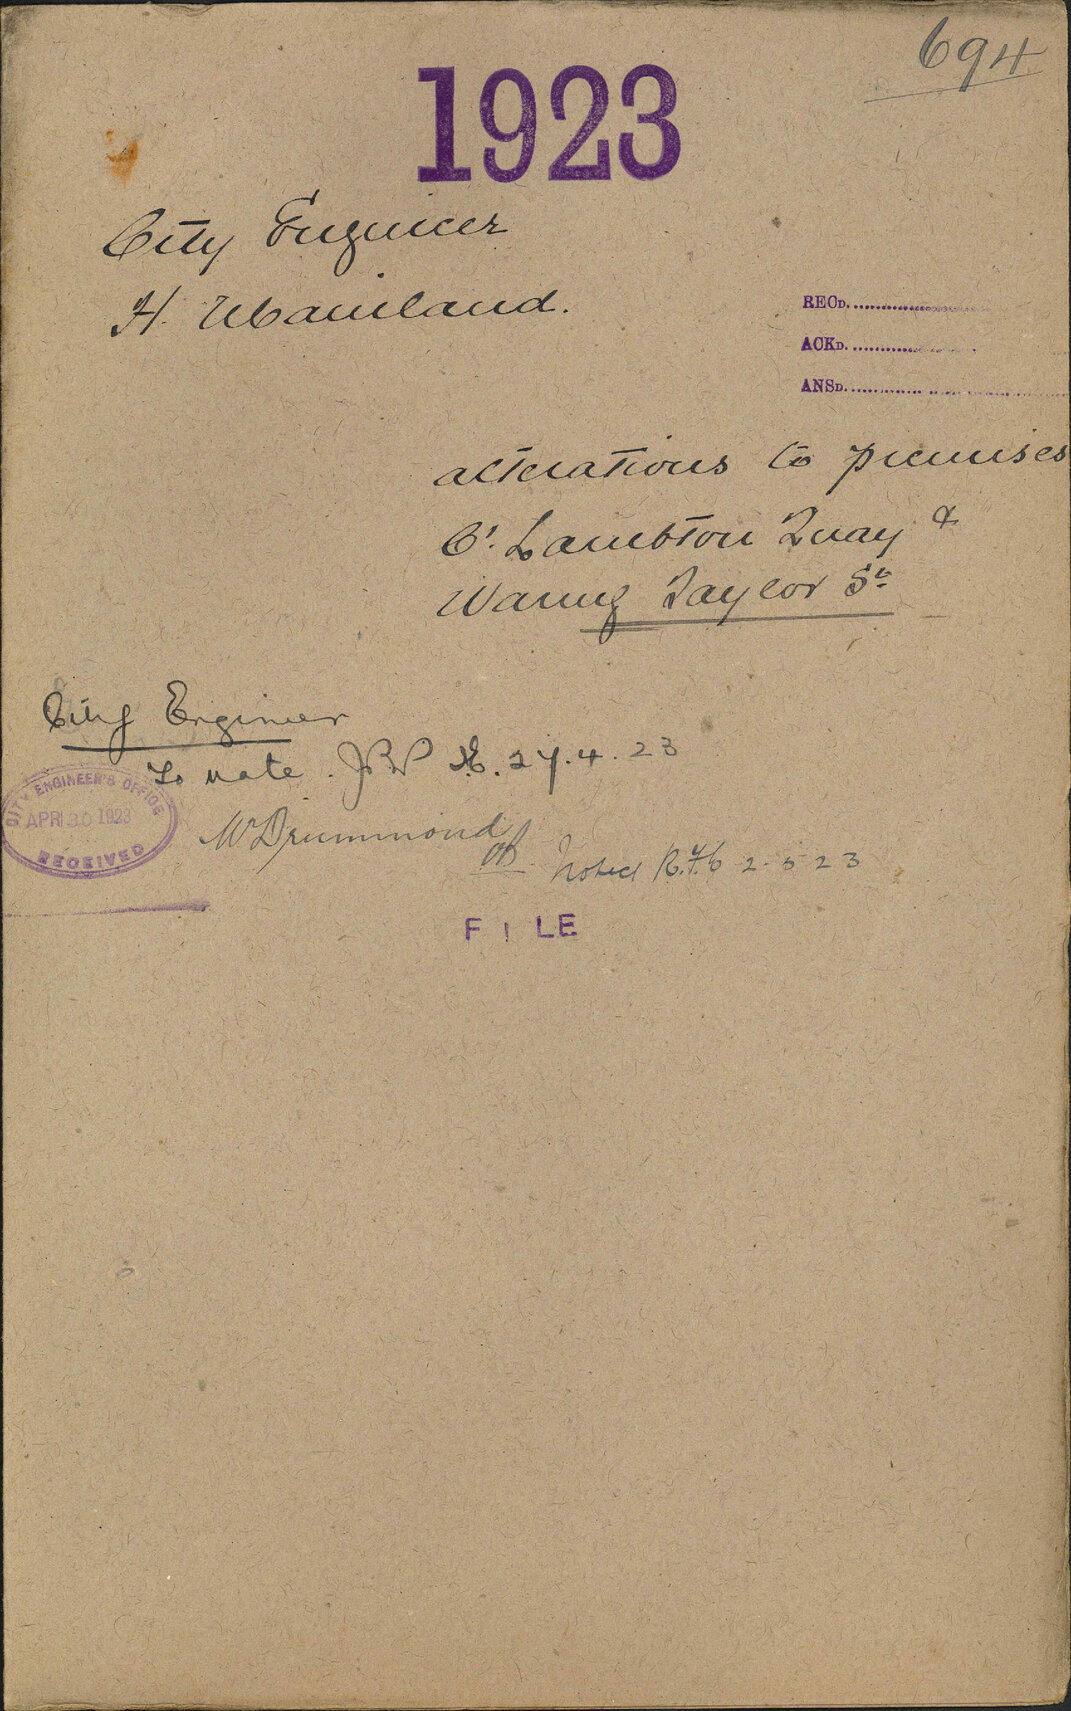 694
1923
City Engineer
H. Mainland.
RECD.
ACKD.
ANSD.
alterations to premises
Cr. Lambton Quay &
Waring Taylor St
City Engineer
To note. 27.4.23
CITY ENGINEER'S OFFICE
APR 30 1923
RECEIVED
W Drummond
Noted 2-5-23
FILE